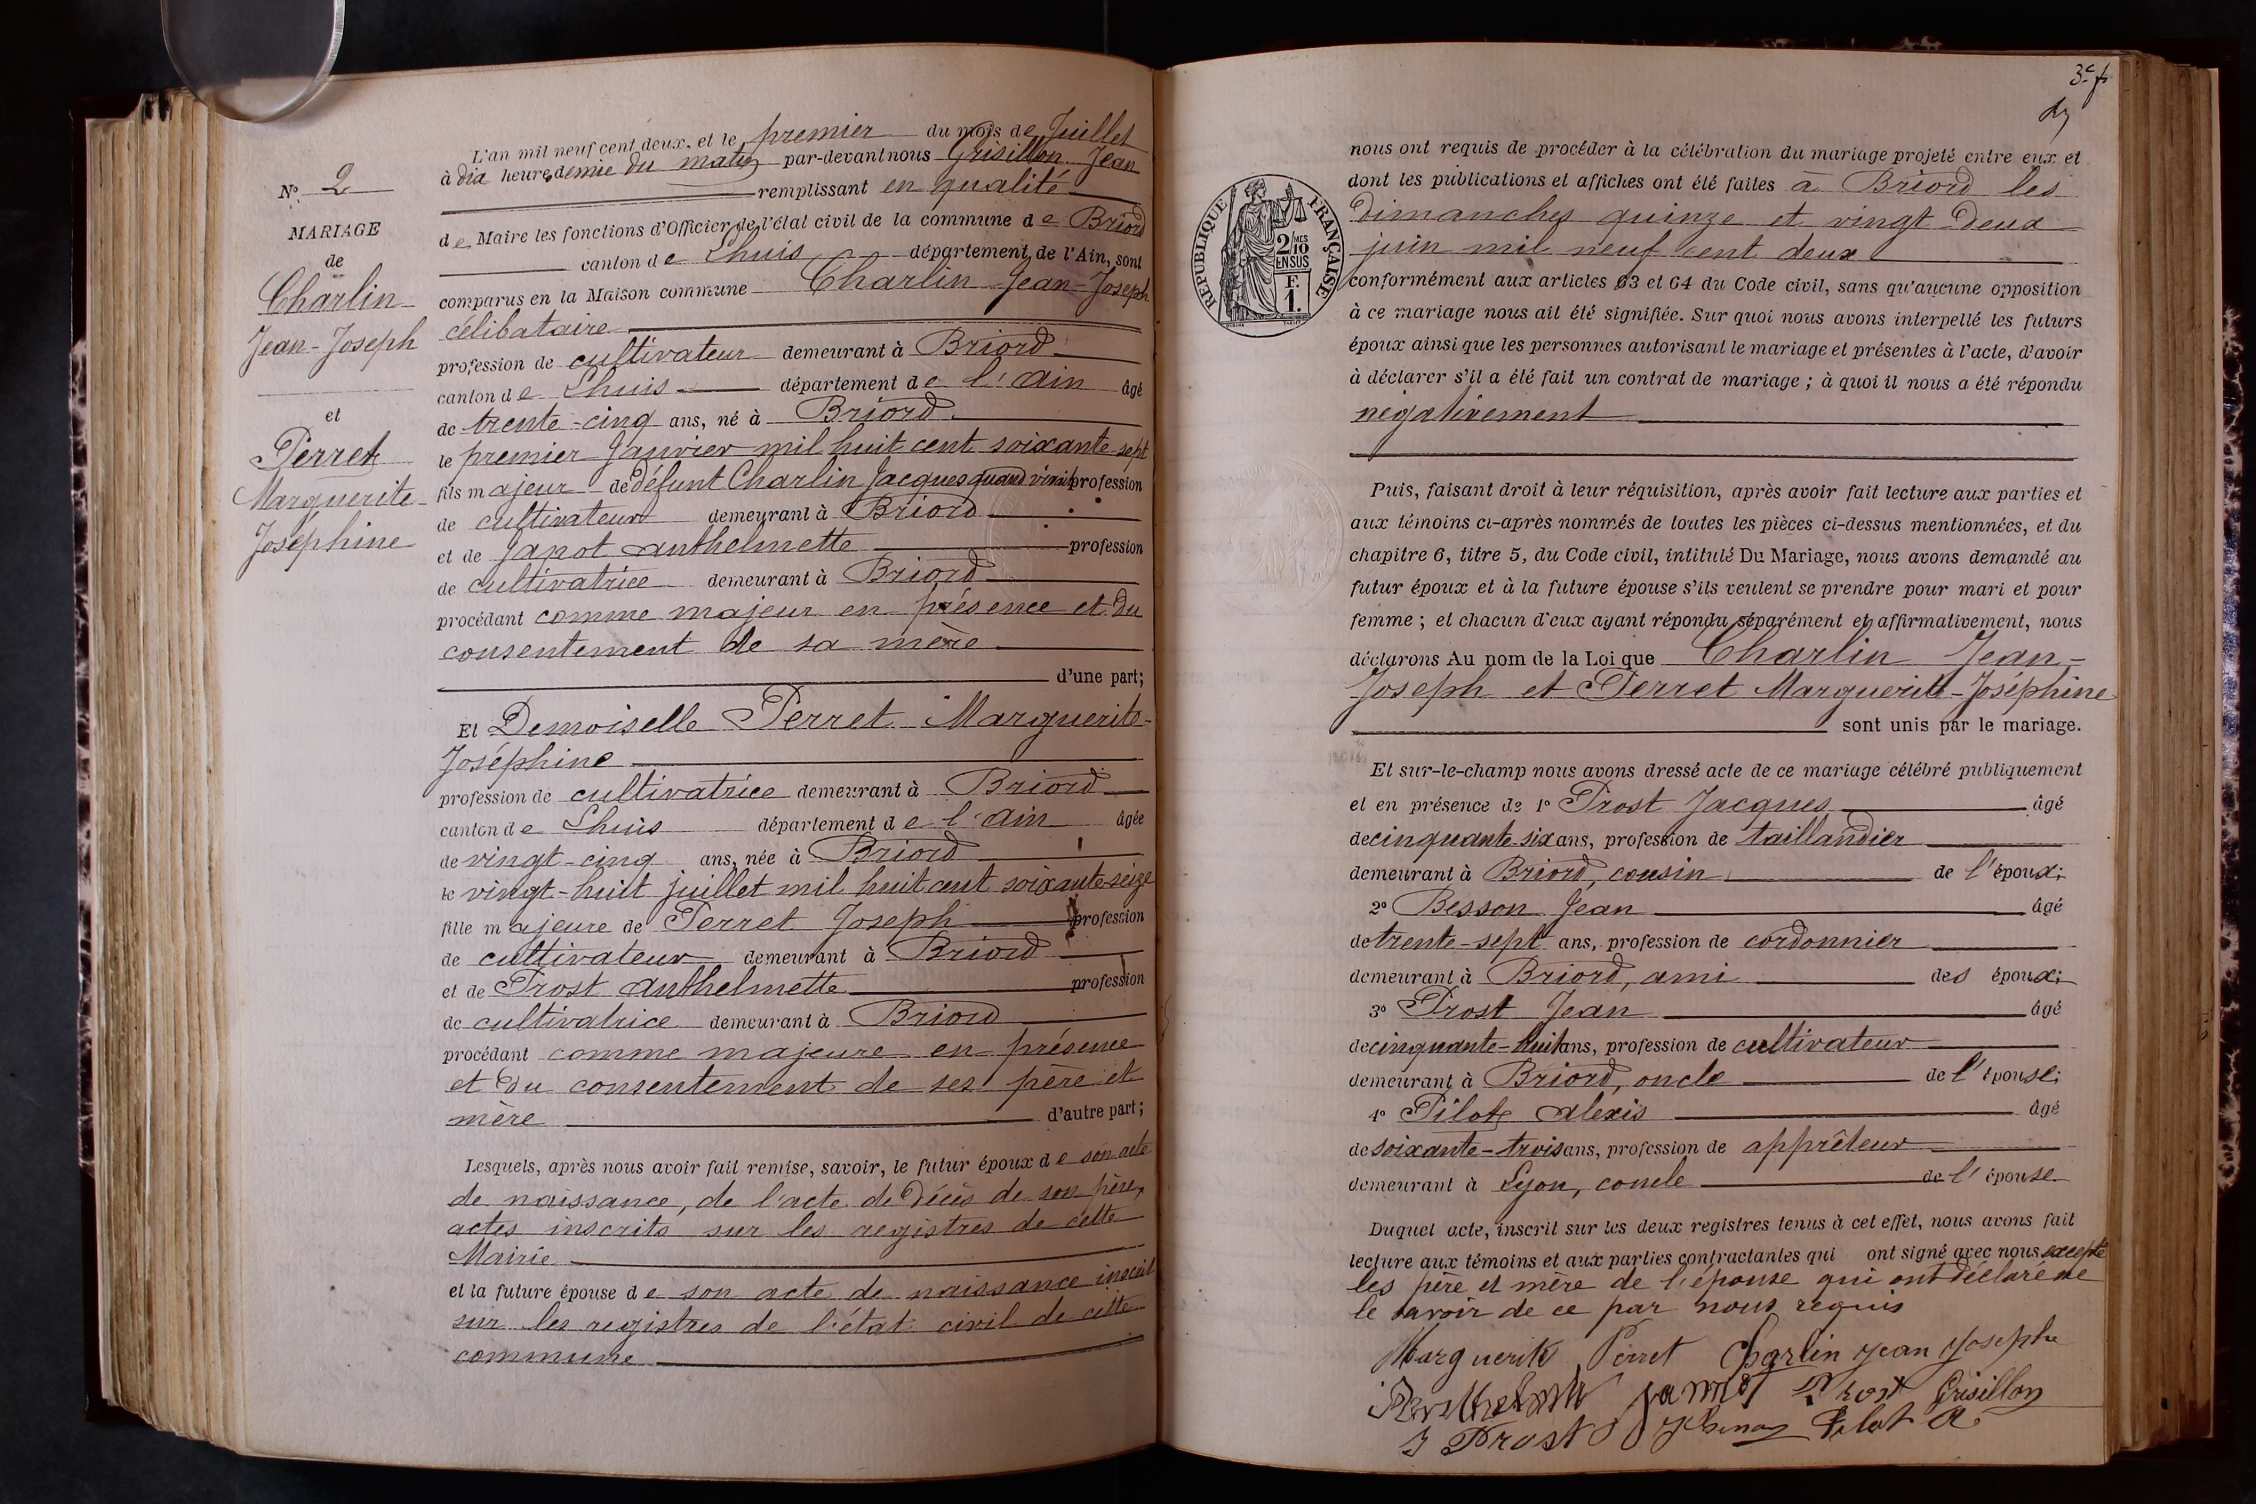 N° 2
MARIAGE
de
Charlin
Jean-Joseph
et
Perret
Marguerite-
Joséphine
L'an mil neuf cent deux, et le premier du mois de Juillet
à dix heures demie du matin par-devant nous Grisillon Jean
remplissant en qualité
de Maire les fonctions d'Officier de l'état civil de la commune de Briord
canton de Lhuis département de l'Ain, sont
comparus en la Maison commune Charlin Jean-Joseph
célibataire
profession de cultivateur demeurant à Briord
canton de Lhuis département de l'Ain âgé
de trente-cinq ans, né à Briord
le premier Janvier mil huit cent soixante-sept
fils majeur de défunt Charlin Jacques quand vivait profession
de cultivateur demeurant à Briord
et de Japot Anthelmette profession
de cultivatrice demeurant à Briord
procédant comme majeur en présence et du
consentement de sa mère
d'une part;
Et Demoiselle Perret Marguerite-
Joséphine
profession de cultivatrice demeurant à Briord
canton de Lhuis département de l'Ain âgée
de vingt-cinq ans, née à Briord
le vingt-huit juillet mil huit cent soixante-seize
fille majeure de Perret Joseph profession
de cultivateur demeurant à Briord
et de Prost Anthelmette profession
de cultivatrice demeurant à Briord
procédant comme majeure en présence
et du consentement de ses père et
mère d'autre part;
Lesquels, après nous avoir fait remise, savoir, le futur époux de son acte
de naissance, de l'acte de décès de son père,
actes inscrits sur les registres de cette
Mairie
et la future épouse de son acte de naissance inscrit
sur les registres de l'état civil de cette
commune
3e f
RÉPUBLIQUE FRANÇAISE
2/10 MES
EN SUS
F.
1.
nous ont requis de procéder à la célébration du mariage projeté entre eux et
dont les publications et affiches ont été faites à Briord les
dimanches quinze et vingt-deux
juin mil neuf cent deux
conformément aux articles 63 et 64 du Code civil, sans qu'aucune opposition
à ce mariage nous ait été signifiée. Sur quoi nous avons interpellé les futurs
époux ainsi que les personnes autorisant le mariage et présentes à l'acte, d'avoir
à déclarer s'il a été fait un contrat de mariage; à quoi il nous a été répondu
négativement
Puis, faisant droit à leur réquisition, après avoir fait lecture aux parties et
aux témoins ci-après nommés de toutes les pièces ci-dessus mentionnées, et du
chapitre 6, titre 5, du Code civil, intitulé Du Mariage, nous avons demandé au
futur époux et à la future épouse s'ils veulent se prendre pour mari et pour
femme; et chacun d'eux ayant répondu séparément et affirmativement, nous
déclarons Au nom de la Loi que Charlin Jean-
Joseph et Perret Marguerite-Joséphine
sont unis par le mariage.
Et sur-le-champ nous avons dressé acte de ce mariage célébré publiquement
et en présence de 1° Prost Jacques âgé
de cinquante-six ans, profession de taillandier
demeurant à Briord, cousin de l'époux;
2° Besson Jean âgé
de trente-sept ans, profession de cordonnier
demeurant à Briord, ami des époux;
3° Prost Jean âgé
de cinquante-huit ans, profession de cultivateur
demeurant à Briord, oncle de l'épouse;
4° Pilot Alexis âgé
de soixante-trois ans, profession de apprêteur
demeurant à Lyon, concle de l'épouse
Duquel acte, inscrit sur les deux registres tenus à cet effet, nous avons fait
lecture aux témoins et aux parties contractantes qui ont signé avec nous excepté
les père et mère de l'épouse qui ont déclaré ne
le savoir de ce par nous requis
Marguerite Perret Charlin Jean Joseph
Prost Grisillon
J Prost Pilot A